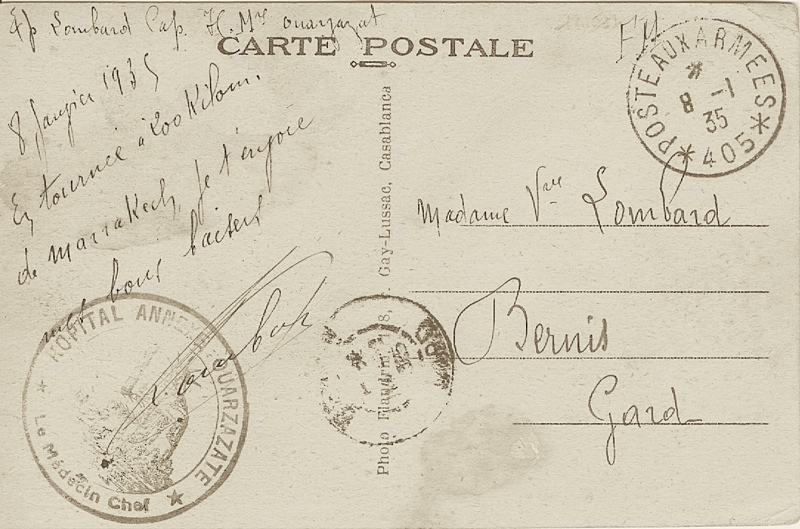 Exp Lombard Cap. H. Mre ouarzazat
FM
CARTE POSTALE
8 Janvier 1935
En tournée à 200 Kilom.
de Marrakech, je t'envoie
mes bons baisers
Lombard
Madame Vve Lombard
Bernis
Gard
POSTE AUX ARMEES
* 8 -1
35
* 405 *
HOPITAL ANNEXE OUARZAZATE
Le Médecin Chef
Photo Flandrin, Gay-Lussac, Casablanca